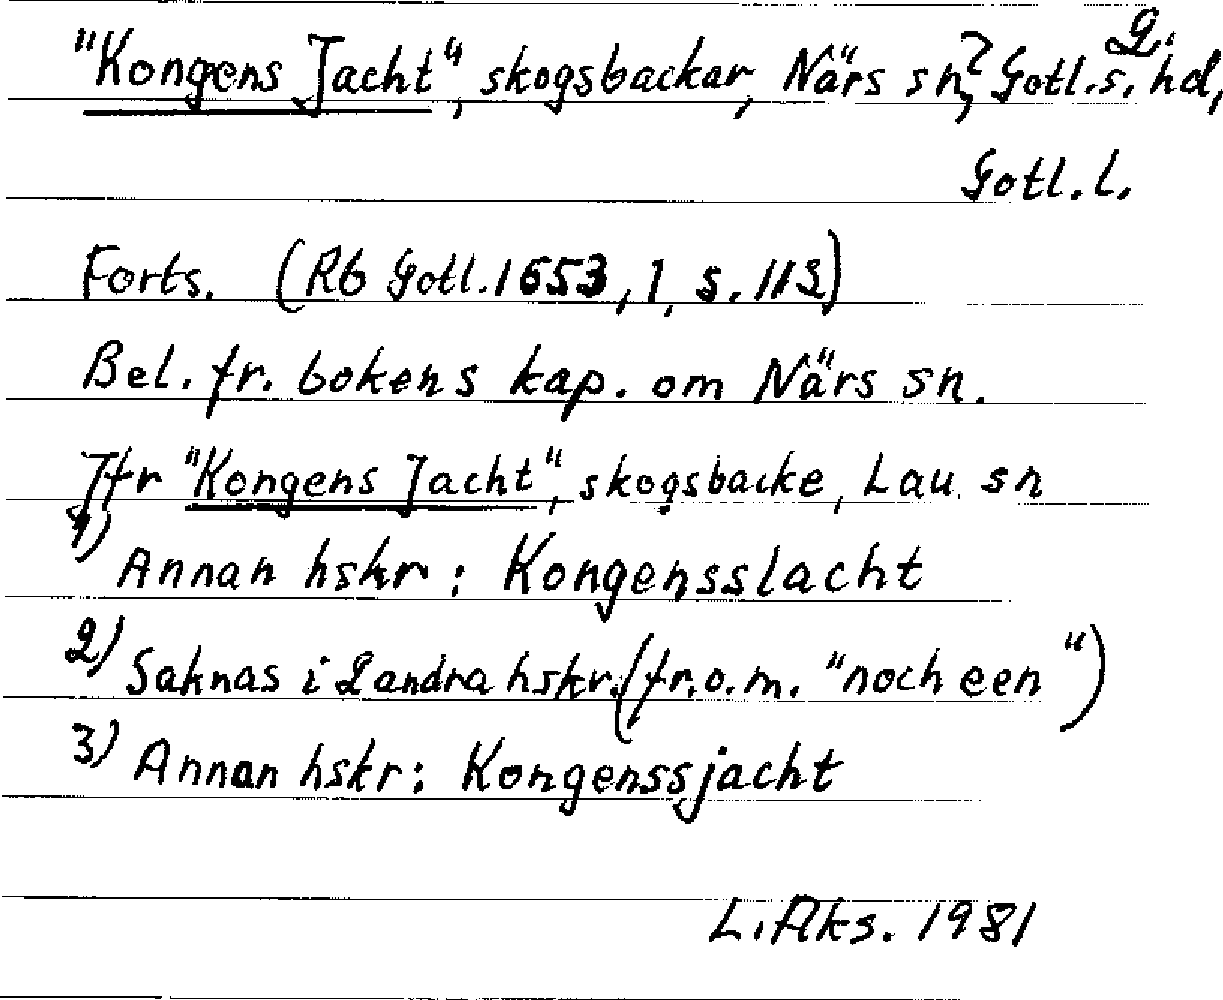 2.
"Kongens Jacht", skogsbackar, När's sn?, Gotl.s. hd,
Gotl. l.
Forts. (Rb Gotl. 1653, 1, s. 112)
Bel. fr. bokens kap. om När's sn.
Jfr "Kongens Jacht", skogsbacke, Lau sn
1) Annan hskr: Kongensslacht
2) Saknas i 2 andra hskr. (fr.o.m. "noch een")
3) Annan hskr: Kongenssjacht
L. Aks. 1981